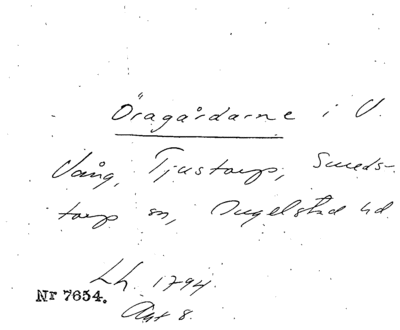 Öragårdarne i V.
Vång, Tjustorp, Smeds-
torp sn, Ingelstad hd.
Lh. 1794.
Nr 7654.
Akt 8.